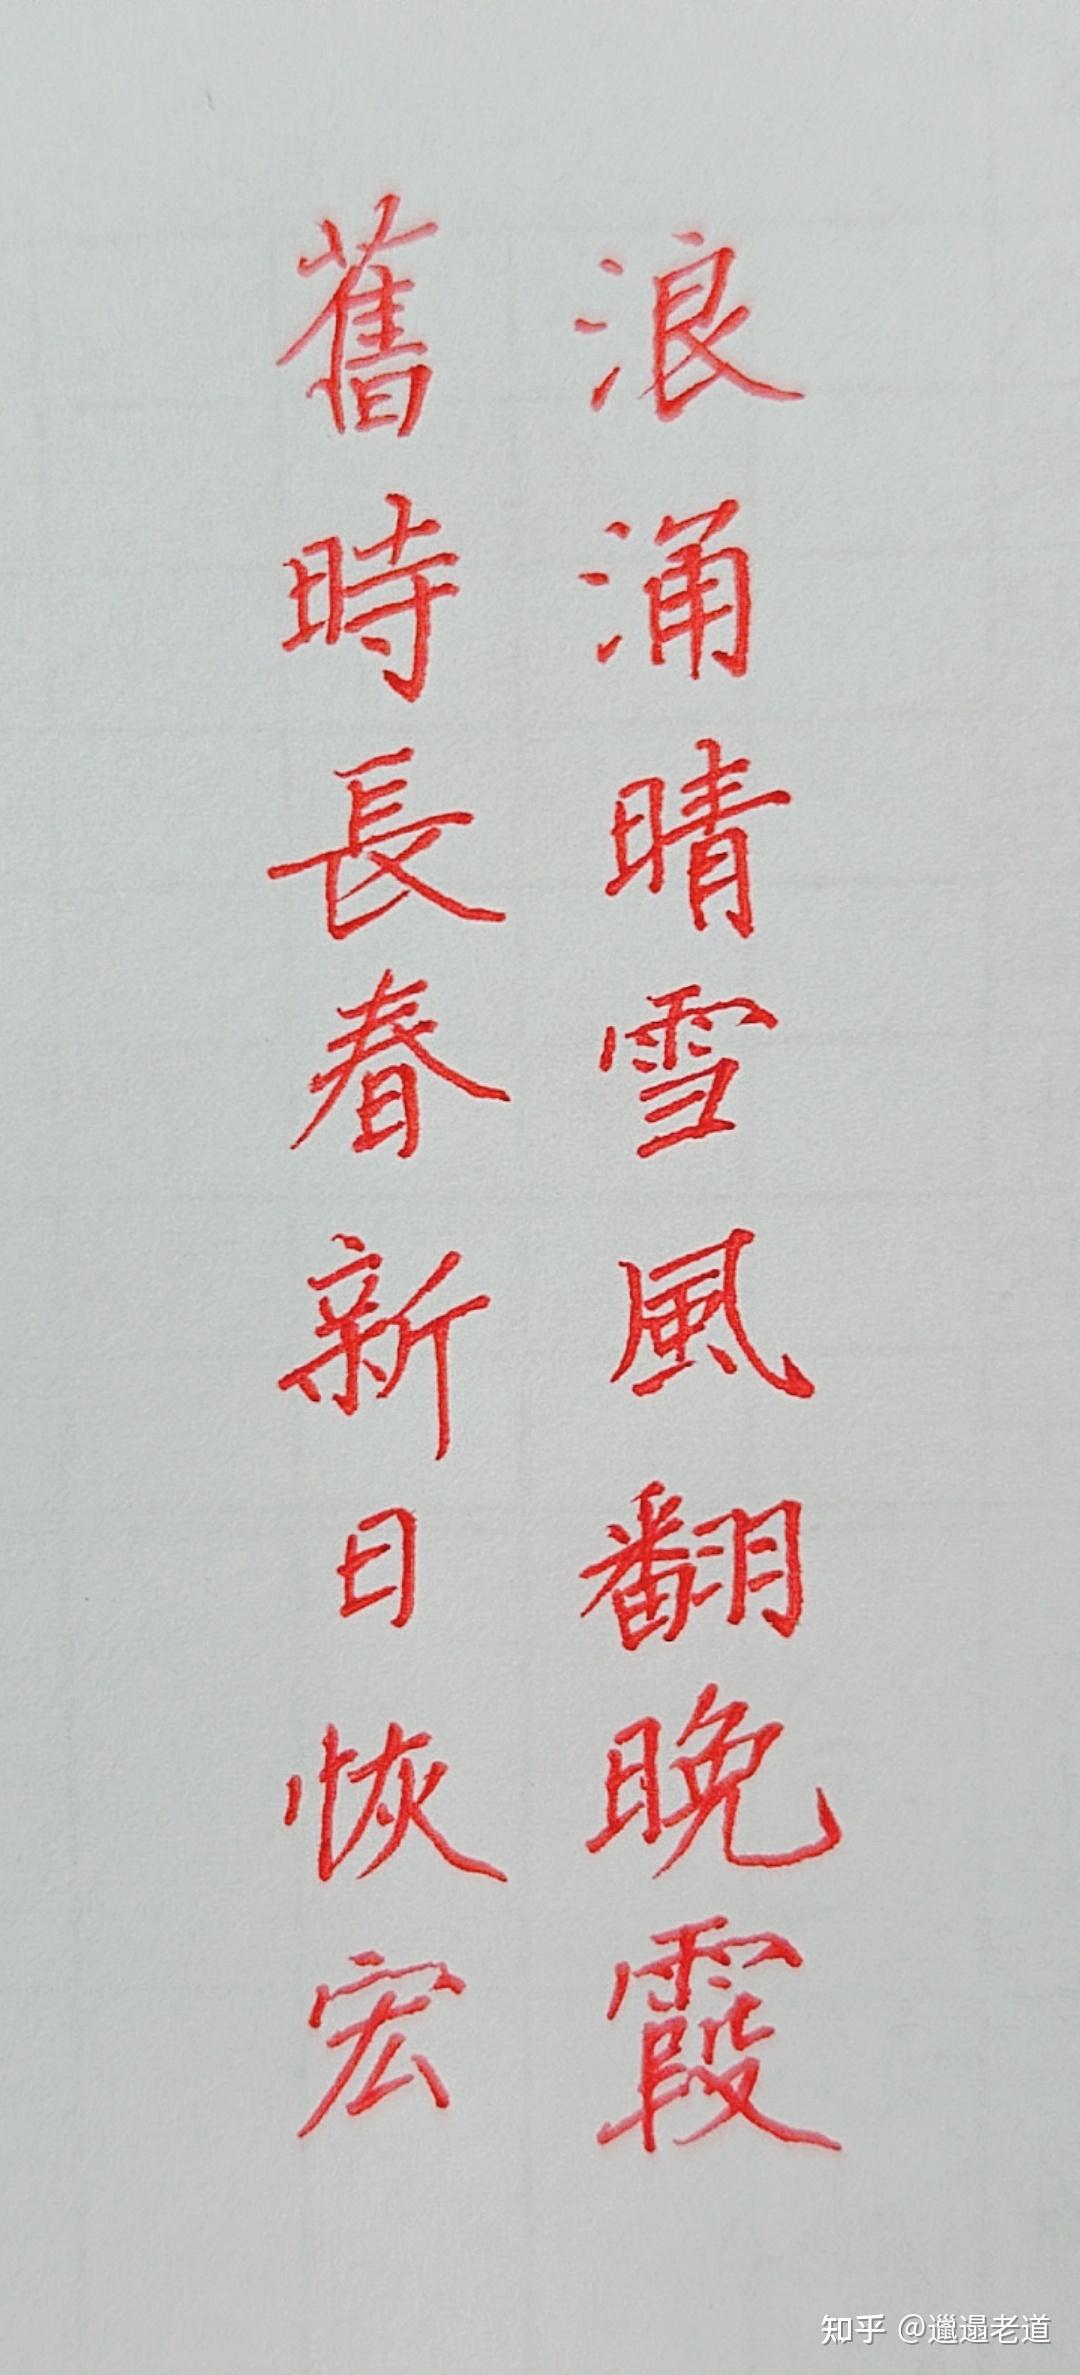 浪涌晴雪風翻晚霞
舊時長春新日恢宏
知乎 @邋遢老道